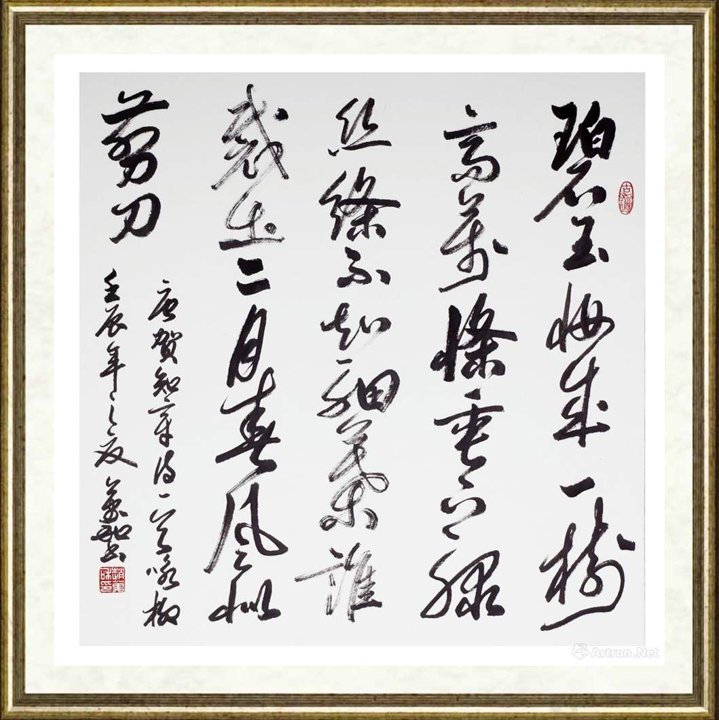 碧玉妝成一樹
高萬條垂下綠
絲縧不知細葉誰
裁出二月春風似
剪刀
唐賀知章詩一首咏柳
壬辰年之夏
Artron.Net